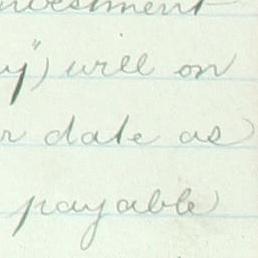 investment
y") will on
r date as
payable